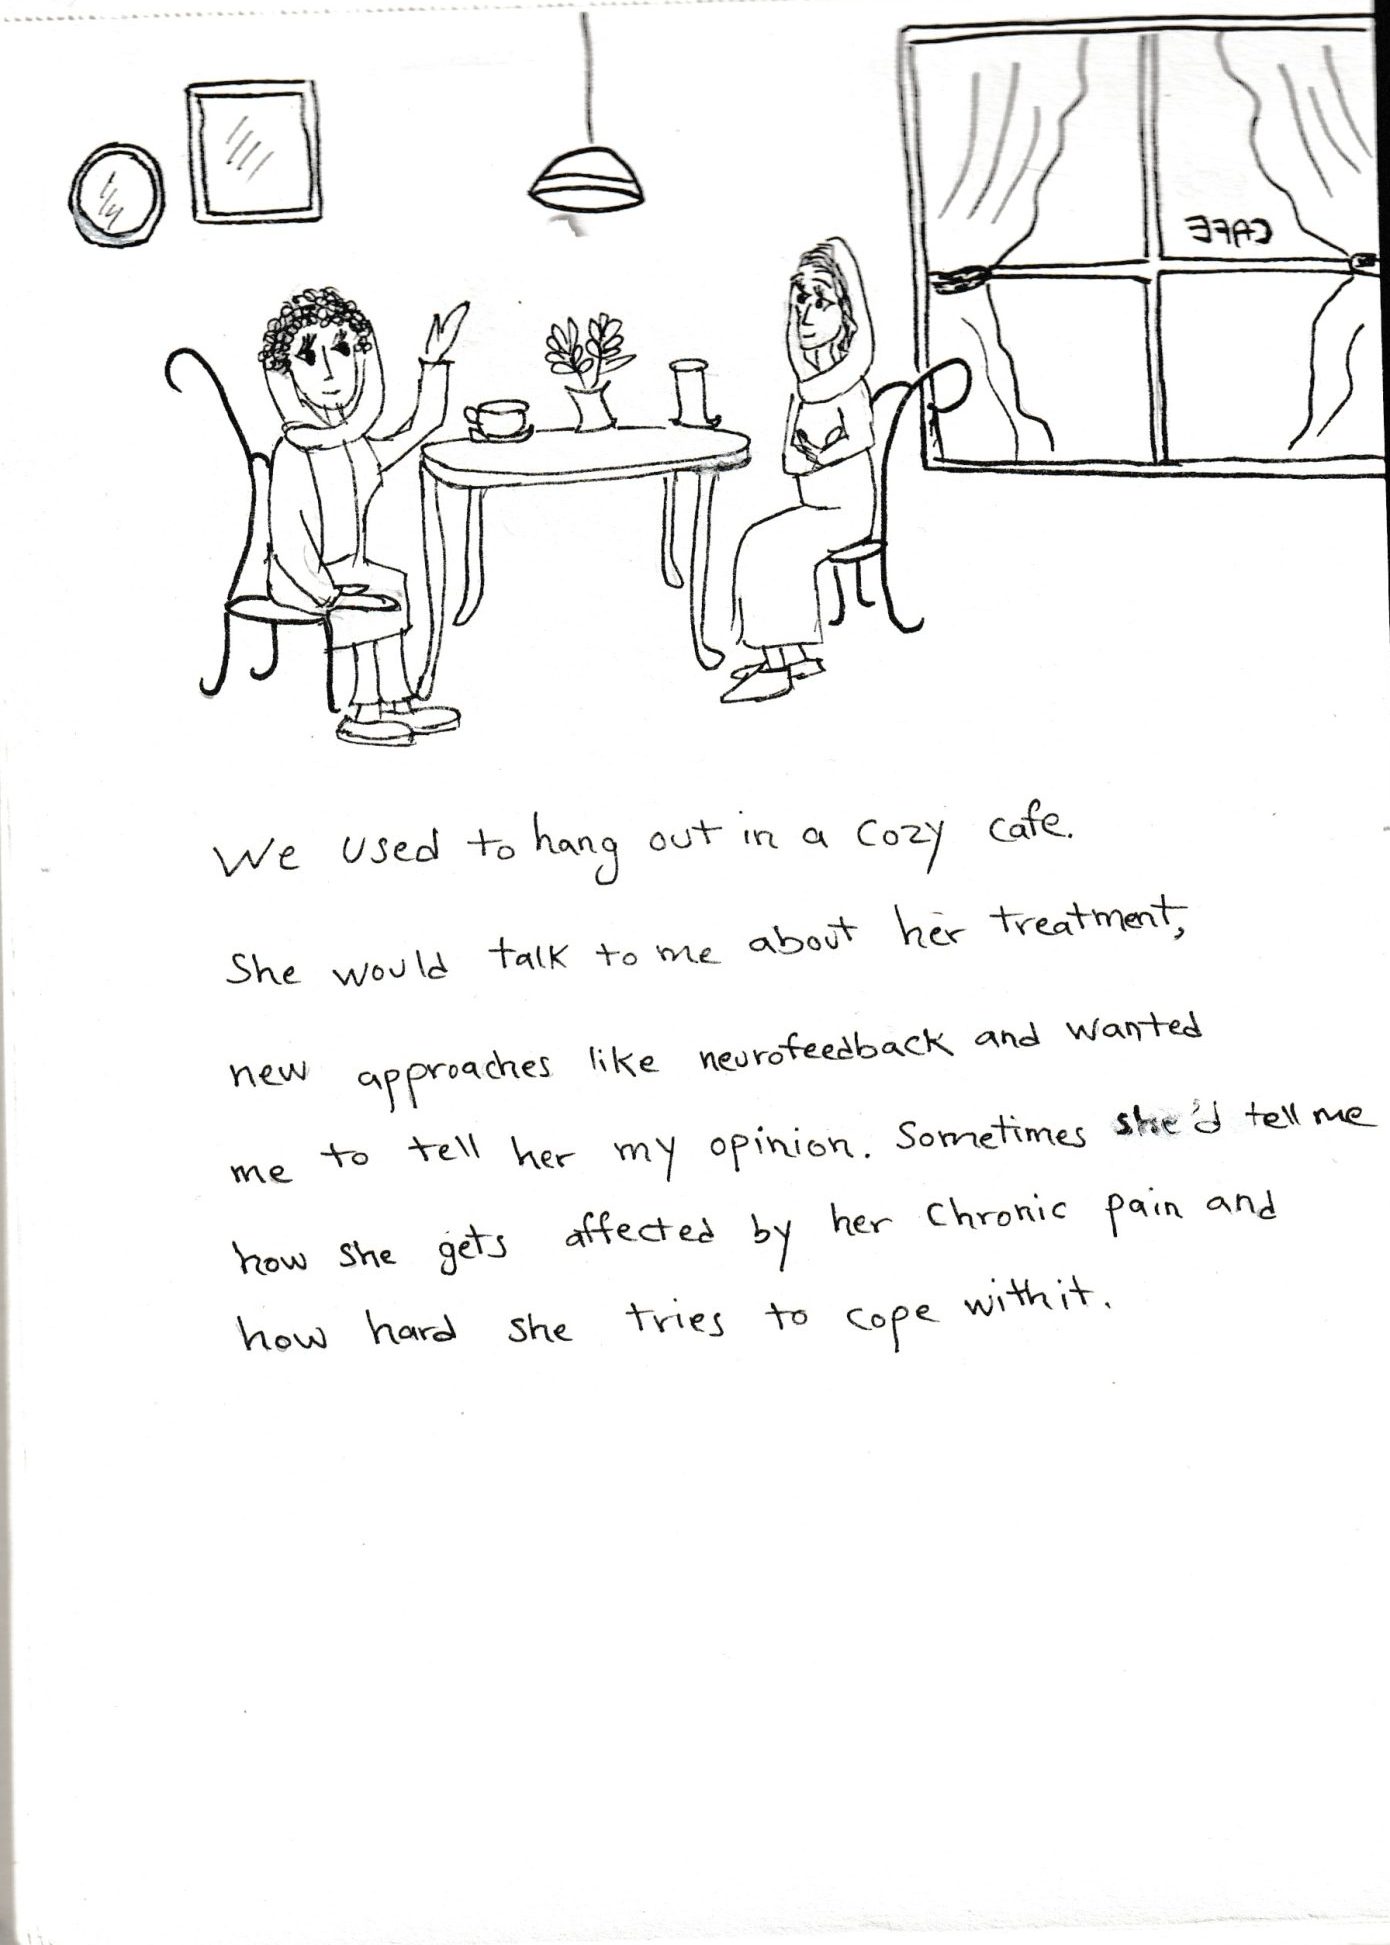 CAFE
We used to hang out in a cozy cafe.
She would talk to me about her treatment,
new approaches like neurofeedback and wanted
me to tell her my opinion. Sometimes she'd tell me
how she gets affected by her chronic pain and
how hard she tries to cope with it.